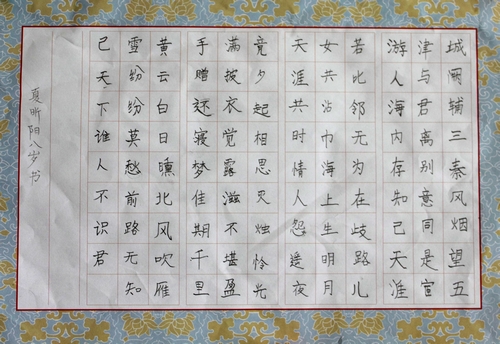 城阙辅三秦风烟望五
津与君离别意同是宣
游人海内存知己天涯
若比邻无为在歧路儿
女共沾巾海上生明月
天涯共时情人怨遥夜
竟夕起相思灭烛怜光
满披衣觉露滋不堪盈
手赠还寝梦佳期千里
黄云白日曛北风吹雁
雪纷纷莫愁前路无知
己天下谁人不识君
夏昕阳八岁书